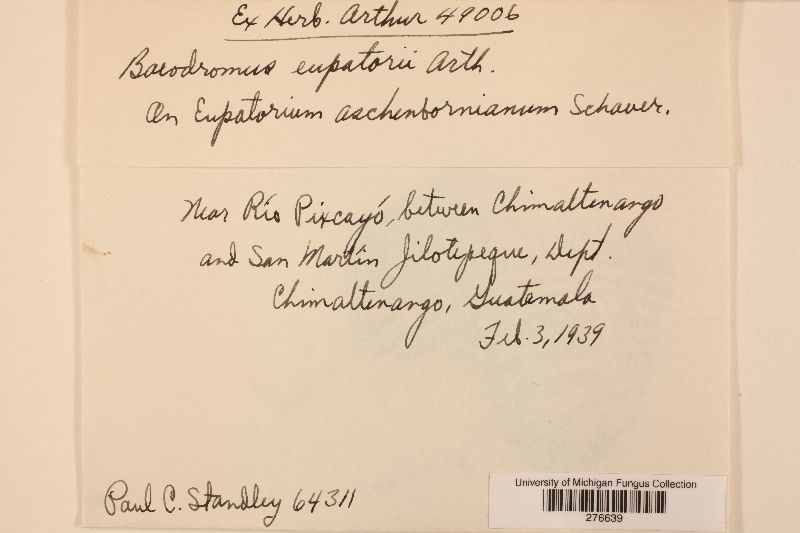 Ex Herb. Arthur 49006
Baeodromus eupatorii Arth.
On Eupatorium aschenbornianum Schauer.
Near Río Pixcayó, between Chimaltenango
and San Martín Jilotepeque, Dept.
Chimaltenango, Guatemala
Feb. 3, 1939
Paul C. Standley 64311
University of Michigan Fungus Collection
276639